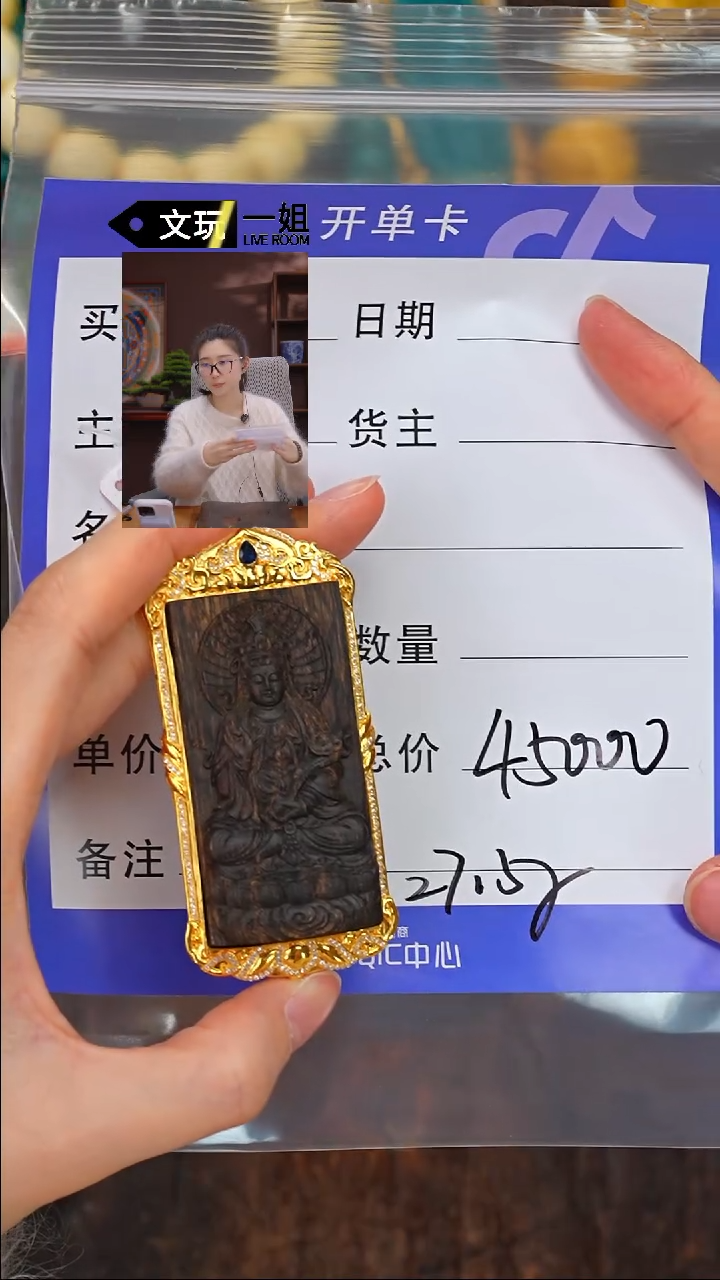 文玩一姐
LIVE ROOM
开单卡
买
日期
主
货主
名
数量
单价
总价 45000
备注 27.5g
QIC中心